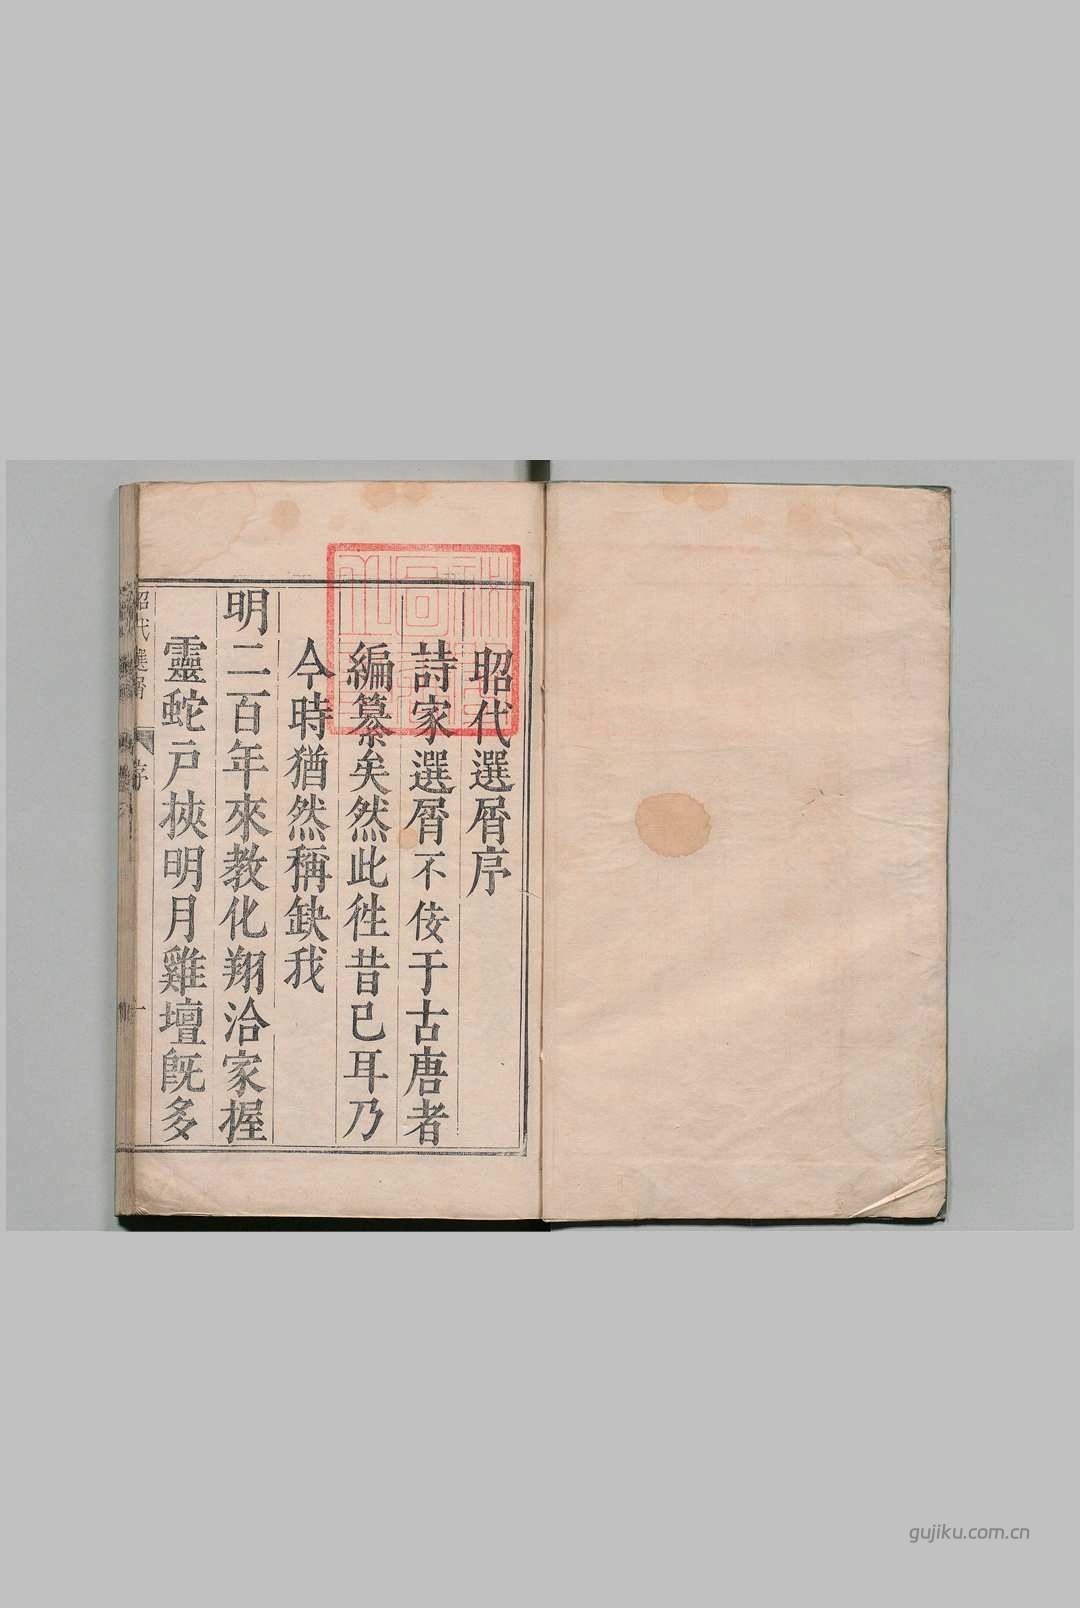 昭代選屑序
詩家選屑不佞于古唐者
編纂矣然此徃昔已耳乃
今時猶然稱缺我
明二百年來教化翔洽家握
靈蛇户挾明月雞壇旣多
昭代選屑
序
一
gujiku.com.cn